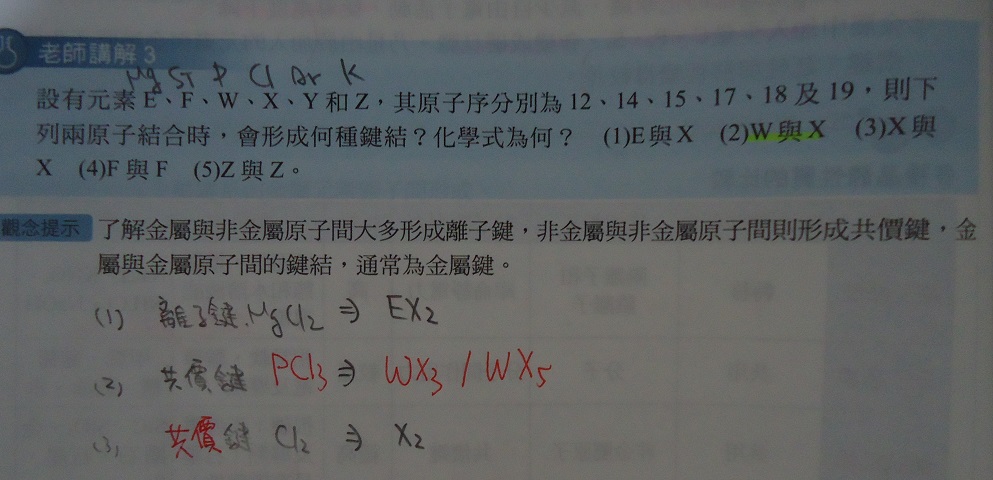 老師講解 3
Mg Si P Cl Ar K
設有元素 E、F、W、X、Y 和 Z,其原子序分別為 12、14、15、17、18 及 19,則下
列兩原子結合時,會形成何種鍵結?化學式為何? (1)E 與 X (2)W 與 X (3)X 與
X (4)F 與 F (5)Z 與 Z。
觀念提示 了解金屬與非金屬原子間大多形成離子鍵,非金屬與非金屬原子間則形成共價鍵,金
屬與金屬原子間的鍵結,通常為金屬鍵。
(1) 離子鍵、MgCl2 ⇒ EX2
(2) 共價鍵 PCl3 ⇒ WX3 / WX5
(3) 共價鍵 Cl2 ⇒ X2